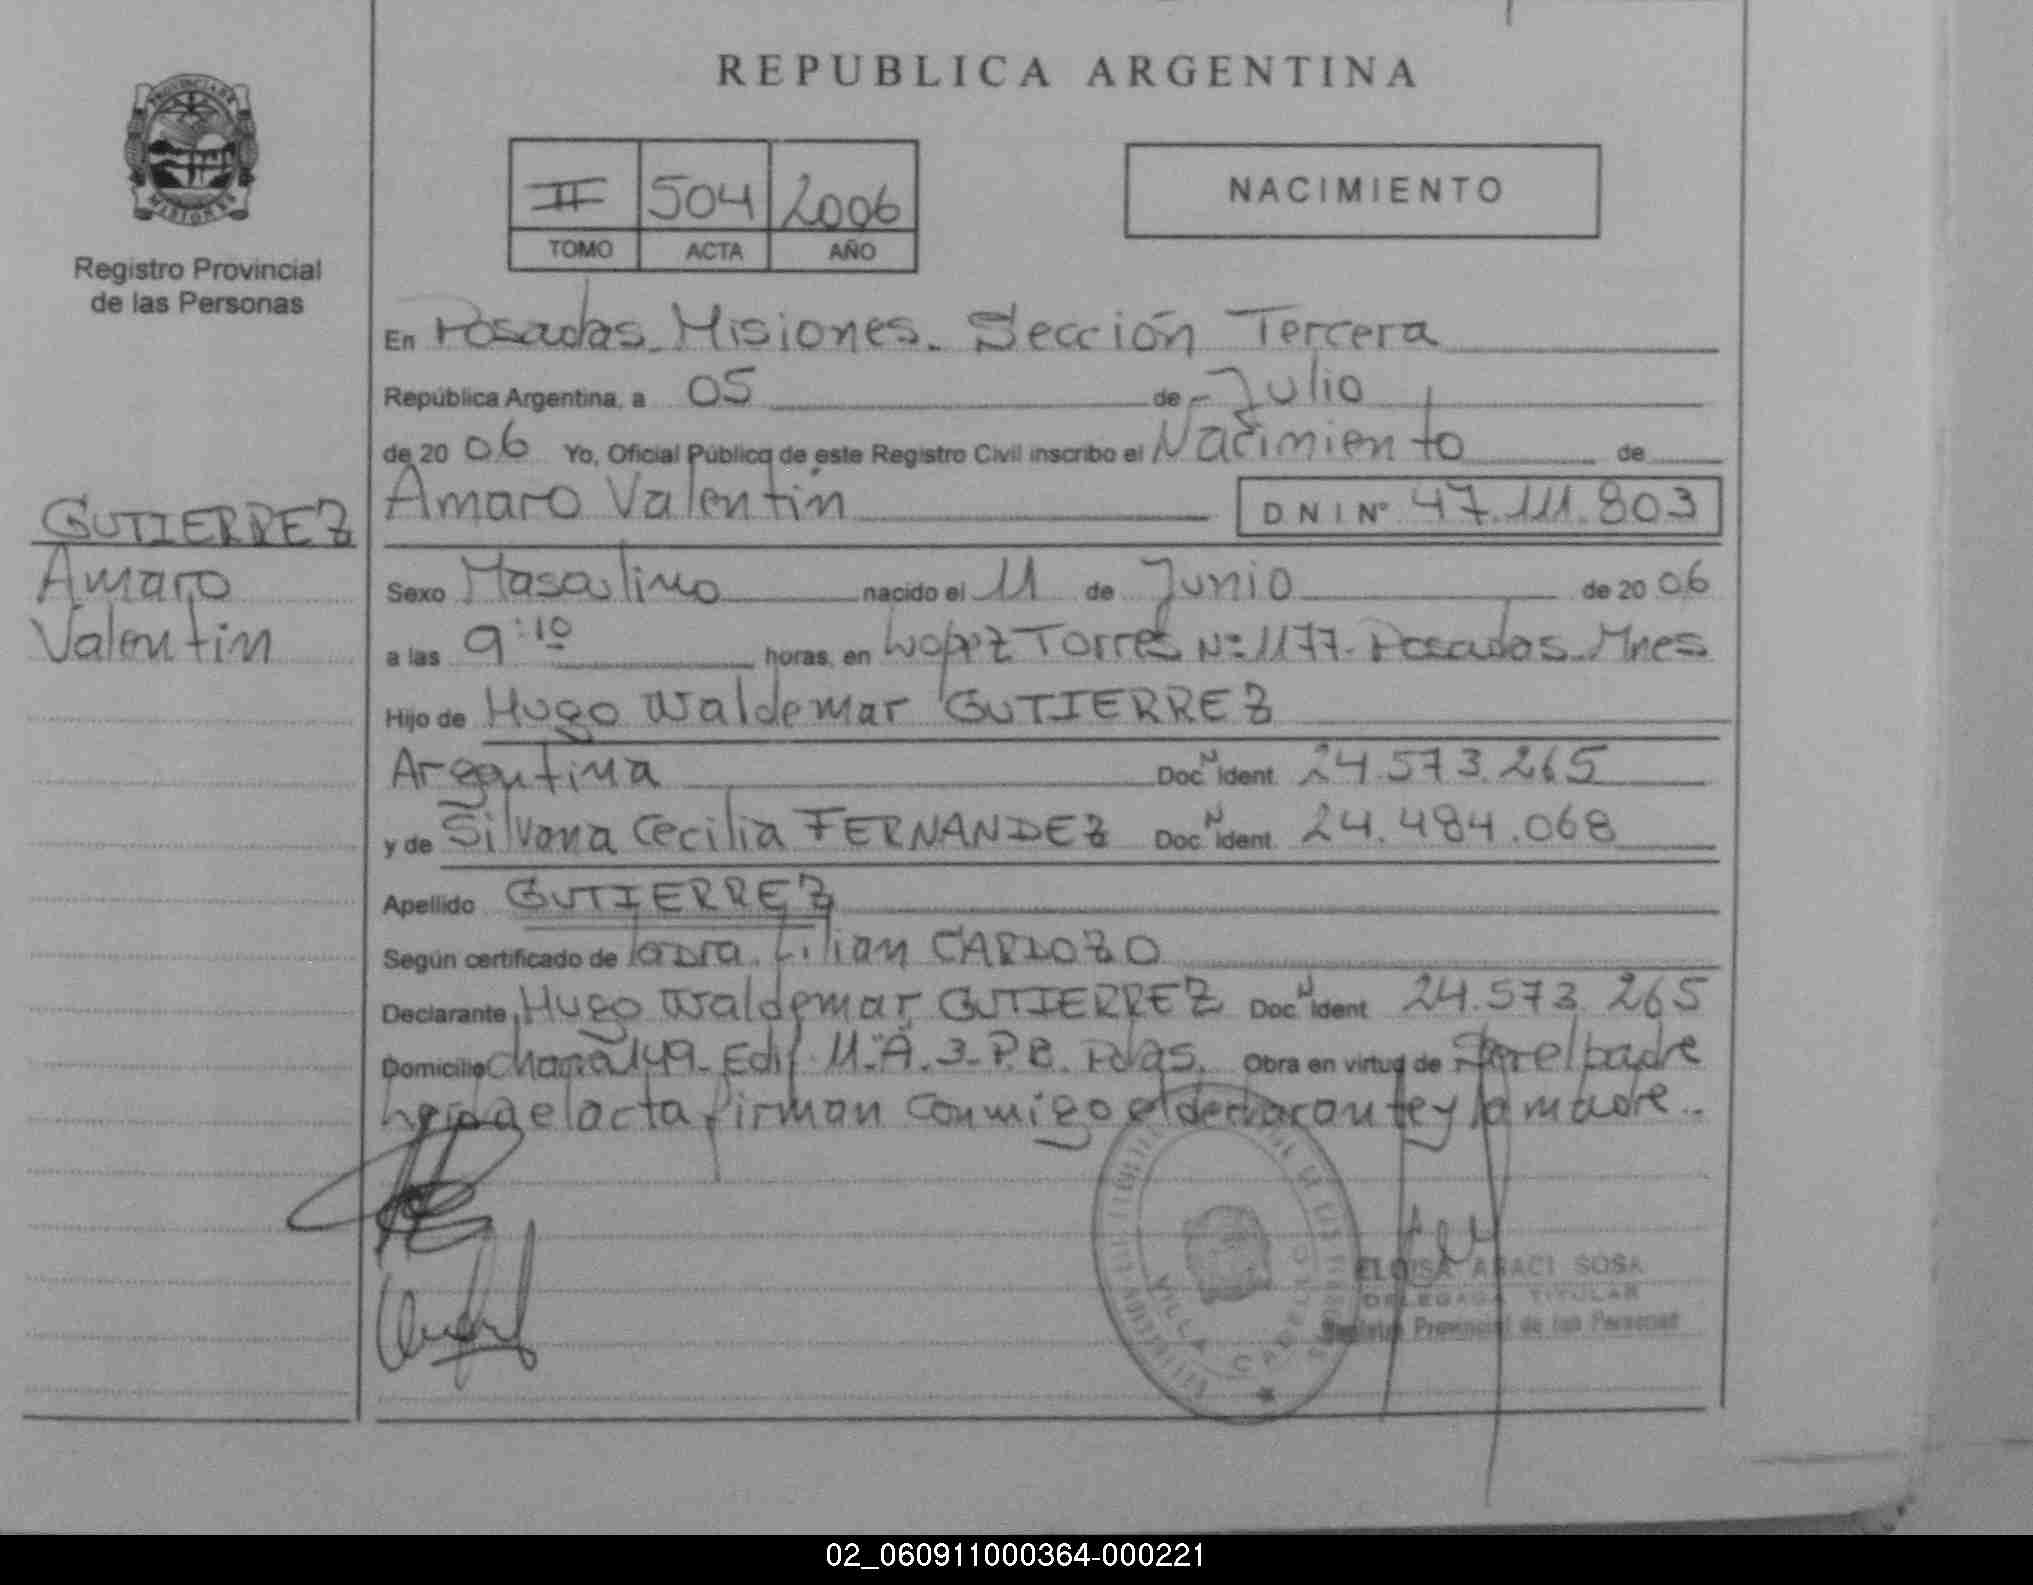 REPUBLICA ARGENTINA
PROVINCIA DE
MISIONES
Registro Provincial
de las Personas
II 504 2006
TOMO ACTA AÑO
NACIMIENTO
En Posadas. Misiones. Sección Tercera
República Argentina, a 05 de Julio
de 20 06 Yo, Oficial Público de este Registro Civil inscribo el Nacimiento de
Amaro Valentín DNI Nº 47.111.803
GUTIERREZ
Amaro
Valentin
Sexo Masculino nacido el 11 de Junio de 20 06
a las 9:10 horas, en Lopez Torres Nº 1177. Posadas. Mnes
Hijo de Hugo Waldemar GUTIERREZ
Argentina Doc N Ident. 24.573.265
y de Silvana Cecilia FERNANDEZ Doc. N Ident. 24.484.068
Apellido GUTIERREZ
Según certificado de la Dra. Lilian CARDOZO
Declarante Hugo Waldemar GUTIERREZ Doc N Ident 24.573.265
Domicilio Chacra 149. Edif. 11. A. 3. P.B. Pdas. Obra en virtud de Ser el padre
leída el acta firman conmigo el declarante y la madre..
VILLA CABELLO
ELOISA ARACI SOSA
DELEGADA TITULAR
Registro Provincial de las Personas
02_060911000364-000221